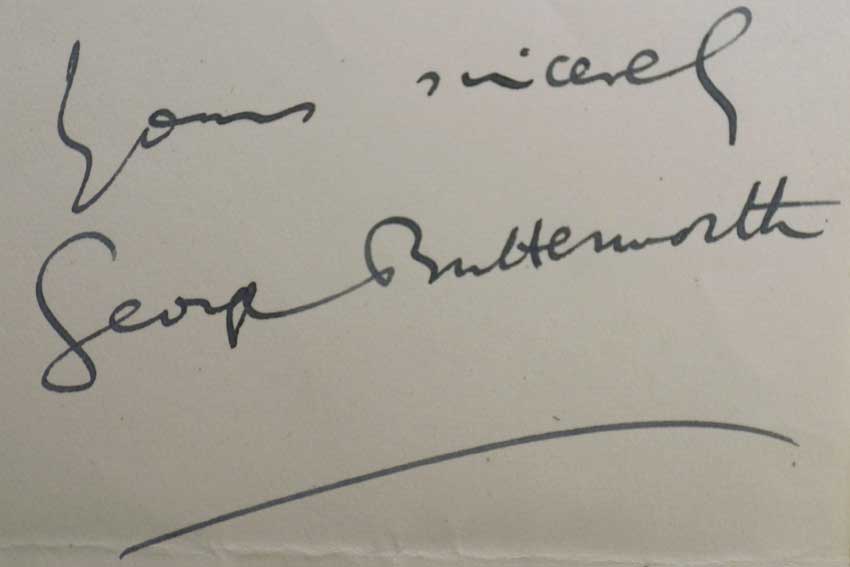 Yours sincerely
George Butterworth